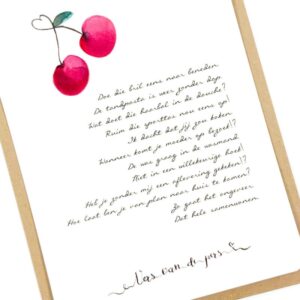 Doe die bril eens naar beneden
De tandpasta is weer zonder dop
Wat doet die haarbal in de douche?
Ruim die sporttas nou eens op!
Ik dacht dat jij zou koken
Wanneer komt je moeder op bezoek?
De was graag in de wasmand
Niet in een willekeurige hoek!
Heb je zonder mij een aflevering gekeken!?
Hoe laat ben je van plan naar huis te komen?
Zo gaat het ongeveer
Dat hele samenwonen
Cas van de pers